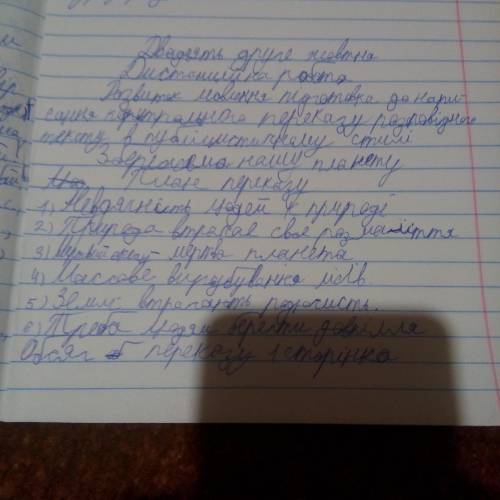 Двадцять друге жовтня
Дистанційна робота
Розвиток мовлення підготовка до напи
сання контрольного переказу розповідного
тексту в публіцистичному стилі
Збережемо нашу планету
План переказу
1) Невдячність людей к природі
2) Природа втрачає своє розмаїття
3) мертва планета
4) Массове вирубування лісів.
5) Землі втрачають родючисть.
6) Треба людям берегти довкілля
Обсяг переказу 1 сторінка